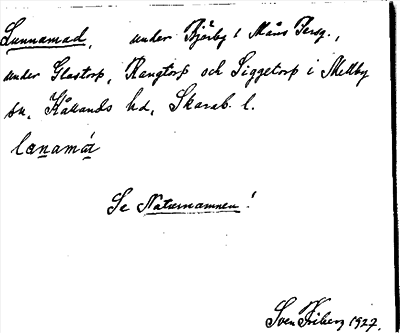 Lunnamad, under Bjärby i Mårs Persg.,
under Glastorp, Rangtorp och Siggetorp i Mellby
sn, Kållands hd, Skarab. l.
lœnamár
Se Naturnamnen!
Sven Friberg 1927.